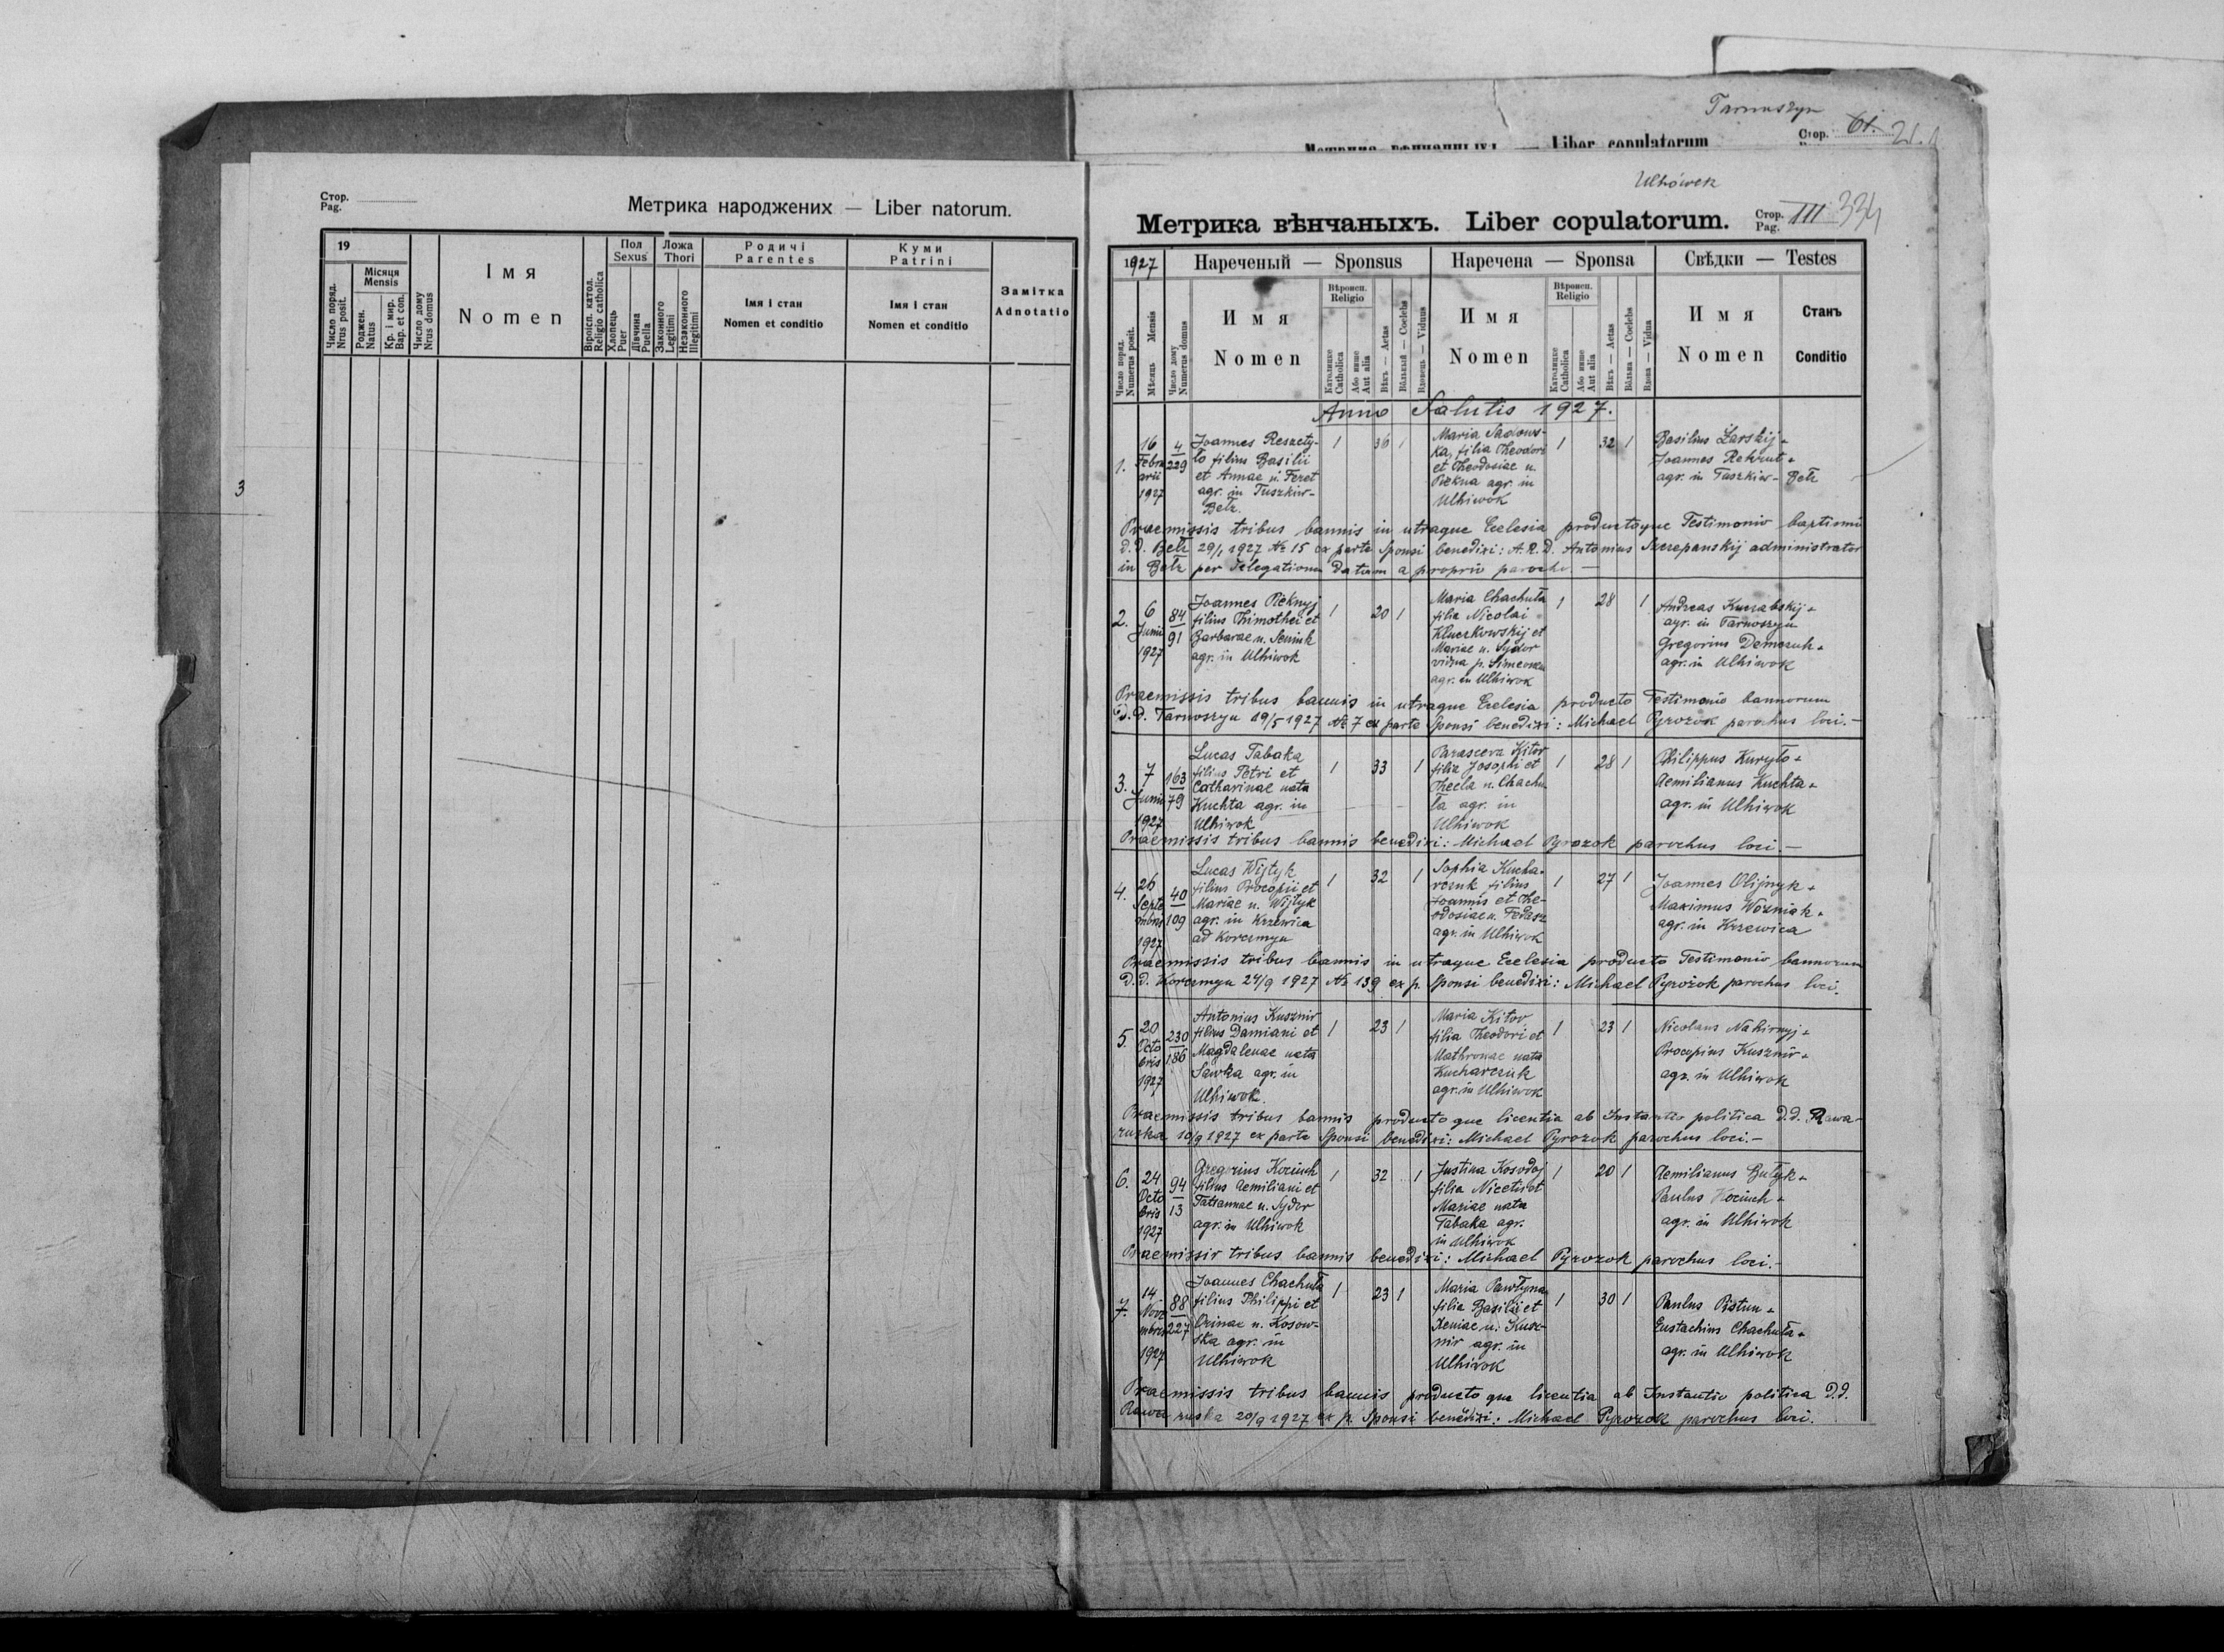 Tarnoszyn
Стор. 61. 21.
Метрика вѣнчаныхъ — Liber copulatorum
3
Стор.
Pag.
Метрика народжених — Liber natorum.
19
Число поряд.
Nrus posit.
Місяця
Mensis
Роджен.
Natus
Кр. і мир.
Bap. et con.
Число дому
Nrus domus
Імя
Nomen
Віроісп. катол.
Religio catholica
Пол
Sexus
Хлопець
Puer
Дівчина
Puella
Ложа
Thori
Законного
Legitimi
Незаконного
Illegitimi
Родичі
Parentes
Імя і стан
Nomen et conditio
Куми
Patrini
Імя і стан
Nomen et conditio
Замітка
Adnotatio
Ulhówek
Метрика вѣнчаныхъ. Liber copulatorum.
Стор.
Pag. III 334
1927
Число поряд.
Numerus posit.
Мѣсяць Mensis
Число дому
Numerus domus
Нареченый — Sponsus
Имя
Nomen
Вѣроисп.
Religio
Католицке
Catholica
Або инше
Aut alia
Вѣкъ — Aetas
Вôльный — Coelebs
Вдовець — Viduus
Наречена — Sponsa
Имя
Nomen
Вѣроисп.
Religio
Католицке
Catholica
Або инше
Aut alia
Вѣкъ — Aetas
Вôльна — Coelebs
Вдова — Vidua
Свѣдки — Testes
Имя
Nomen
Станъ
Conditio
Anno Salutis 1927.
1.
16
Febru
arii
1927
4
229
Joannes Reszety-
ło filius Basilii
et Annae n. Feret
agr. in Tuszkiw-
Bełz.
1 36 1
Maria Sadows-
ka, filia Theodori
et Theodosiae n.
Piekna agr. in
Ulhiwok
1 32 1
Basilius Żarskij +
Joannes Rekrut +
agr. in Tuszkiw - Bełz
Praemissis tribus bannis in utraque Ecclesia productoque Testimonio baptismi
d.d. Bełz 29/1 1927 № 15 ex parte Sponsi benedixi: A.R.D. Antonius Szczepanskij administrator
in Bełz per delegationem datam a proprio parocho. —
2.
6
Junii
1927
84
91
Joannes Pieknyj
filius Thimothei et
Barbarae n. Seniuk
agr. in Ulhiwok
1 20 1
Maria Chachuła
filia Nicolai
Kluczkowskij et
Mariae n. Sydor
vidua p. Simeonem
agr. in Ulhiwok
1 28 1
Andreas Kuczabskij +
agr. in Tarnoszyn
Gregorius Demczuk +
agr. in Ulhiwok
Praemissis tribus bannis in utraque Ecclesia producto Testimonio bannorum
D.d. Tarnoszyn 19/5 1927 № 7 ex parte Sponsi benedixi: Michael Pyrożok parochus loci. —
3.
7
Junii
1927
163
79
Lucas Tabaka
filius Petri et
Catharinae nata
Kuchta agr. in
Ulhiwok
1 33 1
Parasceva Kitor
filia Josephi et
Thecla n. Chachu
ła agr. in
Ulhiwok
1 28 1
Philippus Kuryło +
Aemilianus Kuchta +
agr. in Ulhiwok
Praemissis tribus bannis benedixi: Michael Pyrożok parochus loci. —
4.
26
Septe
mbris
1927
40
109
Lucas Wijtyk
filius Procopii et
Mariae n. Wijtyk
agr. in Krzewica
ad Korczmyn
1 32 1
Sophia Kucha-
rczuk filius
Joannis et The-
odosiae n. Fedasz
agr. in Ulhiwok
1 27 1
Joannes Olijnyk +
Maximus Wozniak +
agr. in Krzewica
Praemissis tribus bannis in utraque Ecclesia producto Testimonio bannorum
D.d. Korczmyn 24/9 1927 № 139 ex p. Sponsi benedixi: Michael Pyrożok parochus loci.
5.
20
Octo
bris
1927
230
186
Antonius Kusznir
filius Damiani et
Magdalenae nata
Sawka agr. in
Ulhiwok.
1 23 1
Maria Kitor
filia Theodori et
Mathronae nata
Kucharczuk
agr. in Ulhiwok
1 23 1
Nicolaus Nakirnyj +
Procopius Kusznir +
agr. in Ulhiwok
Praemissis tribus bannis producto que licentia ab Instantio politica d.d. Rawa-
ruska 10/9 1927 ex parte Sponsi benedixi: Michael Pyrożok parochus loci. —
6.
24
Octo
bris
1927
94
13
Gregorius Kociuch
filius Aemiliani et
Tatiannae n. Sydor
agr. in Ulhiwok
1 32 1
Justina Kosodoj
filia Nicetii et
Mariae nata
Tabaka agr.
in Ulhiwok
1 20 1
Aemilianus Gutyk +
Paulus Kociuch +
agr. in Ulhiwok
Praemissir tribus bannis benedixi: Michael Pyrożok parochus loci. —
7.
14
Nove
mbris
1927
88
227
Joannes Chachuła
filius Philippi et
Irinae n. Kosow-
ska agr. in
Ulhiwok
1 23 1
Maria Pawłyna
filia Basilii et
Xeniae n. Kusz-
nir agr. in
Ulhiwok
1 30 1
Paulus Pistun +
Eustachius Chachuła +
agr. in Ulhiwok
Praemissis tribus bannis producto que licentia ab Instantio politica d.d.
Rawa ruska 20/9 1927 ex p. Sponsi benedixi: Michael Pyrożok parochus loci.